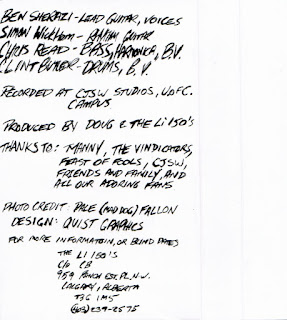 BEN SHERAZI - LEAD GUITAR, VOICES
SIMON WICKHAM - RHYTHM GUITAR
CHRIS READ - BASS, HARMONICA, B.V.
CLINT BUTLER - DRUMS, B.V.
RECORDED AT CJSW STUDIOS, U OFC.
CAMPUS
PRODUCED BY DOUG & THE Li'150's
THANKS TO: MANNY, THE VINDICATORS,
FEAST OF FOOLS, CJSW,
FRIENDS AND FAMILY, AND
ALL OUR ADORING FANS
PHOTO CREDIT DALE (MAD DOG) FALLON
DESIGN: QUIST GRAPHICS
FOR MORE INFORMATION, OR BLIND DATES
THE LI 150's
C/O CB
959 RANCH EST. PL. N.W.
CALGARY, ALBERTA
T3G 1M5
(403) 239-2575